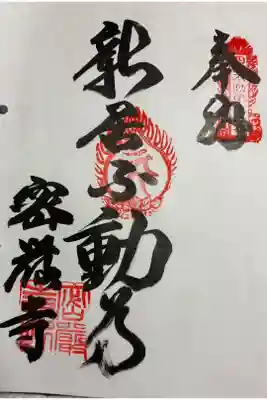 奉拝
新居不動尊
密厳寺